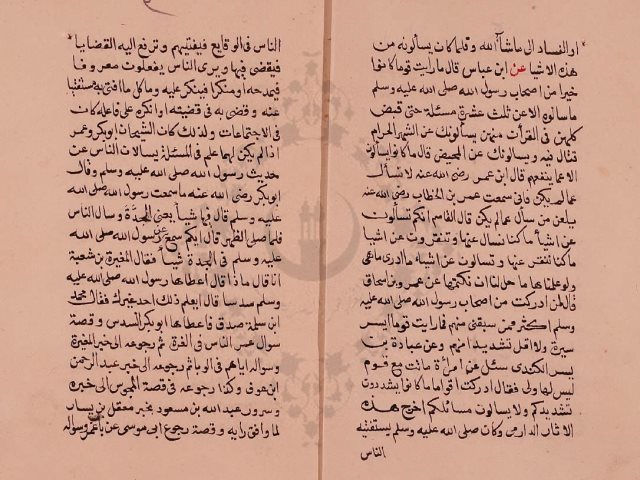 او الفساد الى ماشاء الله وقلما كان يسألونه من
هذه الاشيا عن ابن عباس قال ما رايت قوما كانوا
خيرا من اصحاب رسول الله صلى الله عليه وسلم
ما سالوه الا عن ثلث عشرة مسئلة حتى قبض
كلهن في القرأن منهن يسألونك عن الشهر الحرام
قتال فيه ويسالونك عن المحيض قال ما كانوا يسالون
الا عما ينفعهم قال ابن عمر رضى الله عنه لا تسأل
عما لم يكن فانى سمعت عمر بن الخطاب رضى الله عنه
يلعن من سأل عما لم يكن قال القاسم انكم تسألون
عن اشيا ما كنا نسأل عنها وتنقرون عن اشيا
ما كنا ننقر عنها وتسالون عن اشيا ما ادرى ماهى
ولو علمناها ما حل لنا ان نكتمها عن عمر بن اسحاق
قال لمن ادركت من اصحاب رسول الله صلى الله عليه
وسلم اكثر ممن سبقنى منهم فما رايت قوما ايسر
سيرة ولا اقل تشديدا منهم وعن عبادة بن
يسر الكندى سئل عن امرأة ماتت مع قوم
ليس لها ولى فقال ادركت اقواما ما كانوا يشددون
تشديدكم ولا يسالون مسائلكم اخرج هذه
الاثار الدارمى وكان صلى الله عليه وسلم يستفتيه
الناس
الناس فى الوقايع فيفتيهم وترفع اليه القضايا
فيقضى فيها ويرى الناس يفعلون معروفا
فيمدحه او منكرا فينكر عليه وما كل ما افتى به مستفتيا
عنه وقضى به فى قضيته او انكره على فاعله كان
فى الاجتماعات ولذلك كان الشيخان ابو بكر وعمر
اذا لم يكن لهما علم فى المسئلة يسالان الناس عن
حديث رسول الله صلى الله عليه وسلم وقال
ابو بكر رضى الله عنه ما سمعت رسول الله صلى الله
عليه وسلم قال فيها شيأ يعنى الجدة وسال الناس
فلما صلى الظهر قال ايكم سمع من رسول الله صلى الله
عليه وسلم فى الجدة شيأ فقال المغيرة بن شعبة
انا قال ماذا قال اعطاها رسول الله صلى الله عليه
وسلم سدسا قال ايعلم ذلك احد غيرك فقال محمد
ابن سلمة صدق فاعطاها ابو بكر السدس وقصة
سوال عمر الناس فى الغرة ثم رجوعه الى خبر المغيرة
وسواله اياهم فى الوبا ثم رجوعه الى خبر عبد الرحمن
ابن عوف وكذا رجوعه فى قصة المجوس الى خبره
وسرور عبد الله بن مسعود بخبر معقل بن يسار
لما وافق رايه وقصة رجوع ابى موسى عن باب عمر وسواله